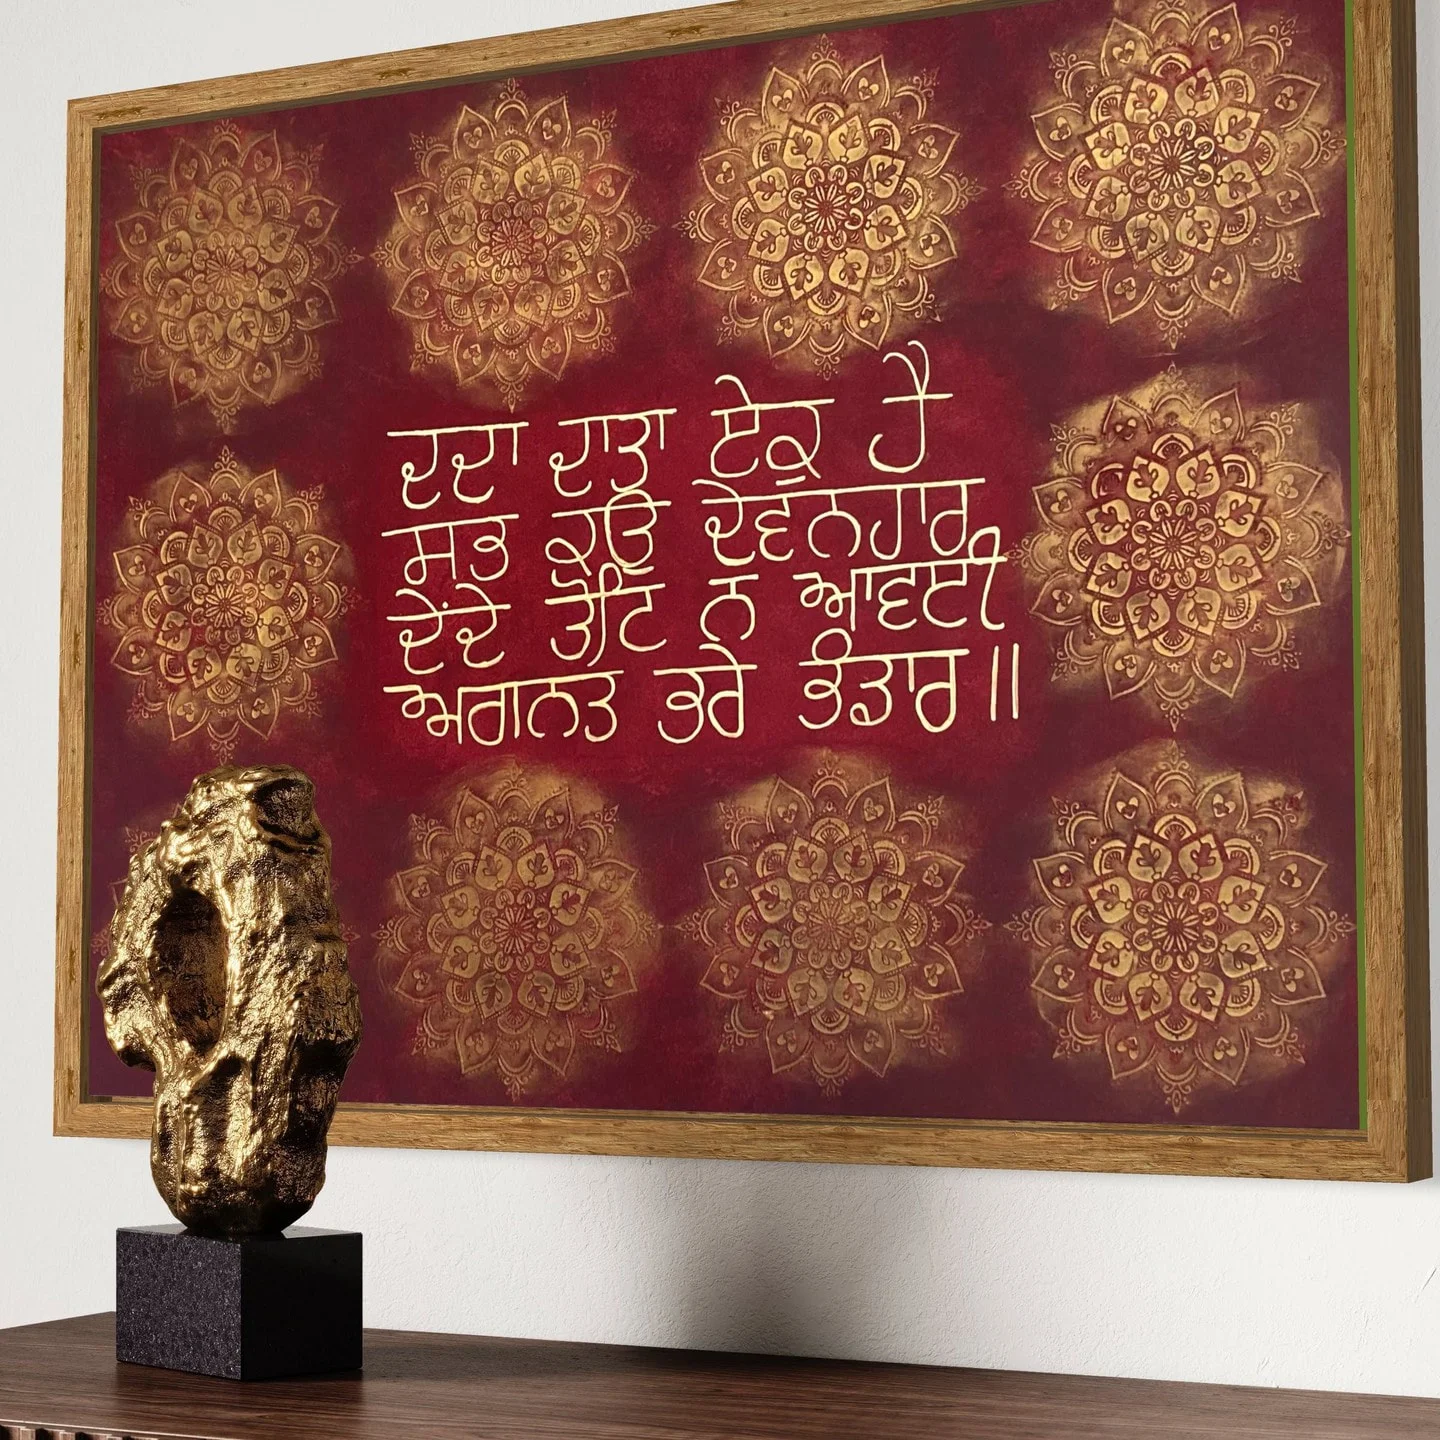 ਦਦਾ ਦਾਤਾ ਏਕ ਹੈ
ਸਭ ਕਉ ਦੇਵਨਹਾਰ
ਦੇਂਦੇ ਤੋਟਿ ਨ ਆਵਈ
ਅਗਨਤ ਭਰੇ ਭੰਡਾਰ॥